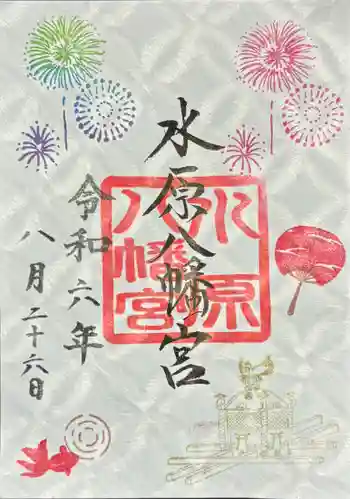 水原八幡宮
水原
八幡宮
令和六年
八月二十六日